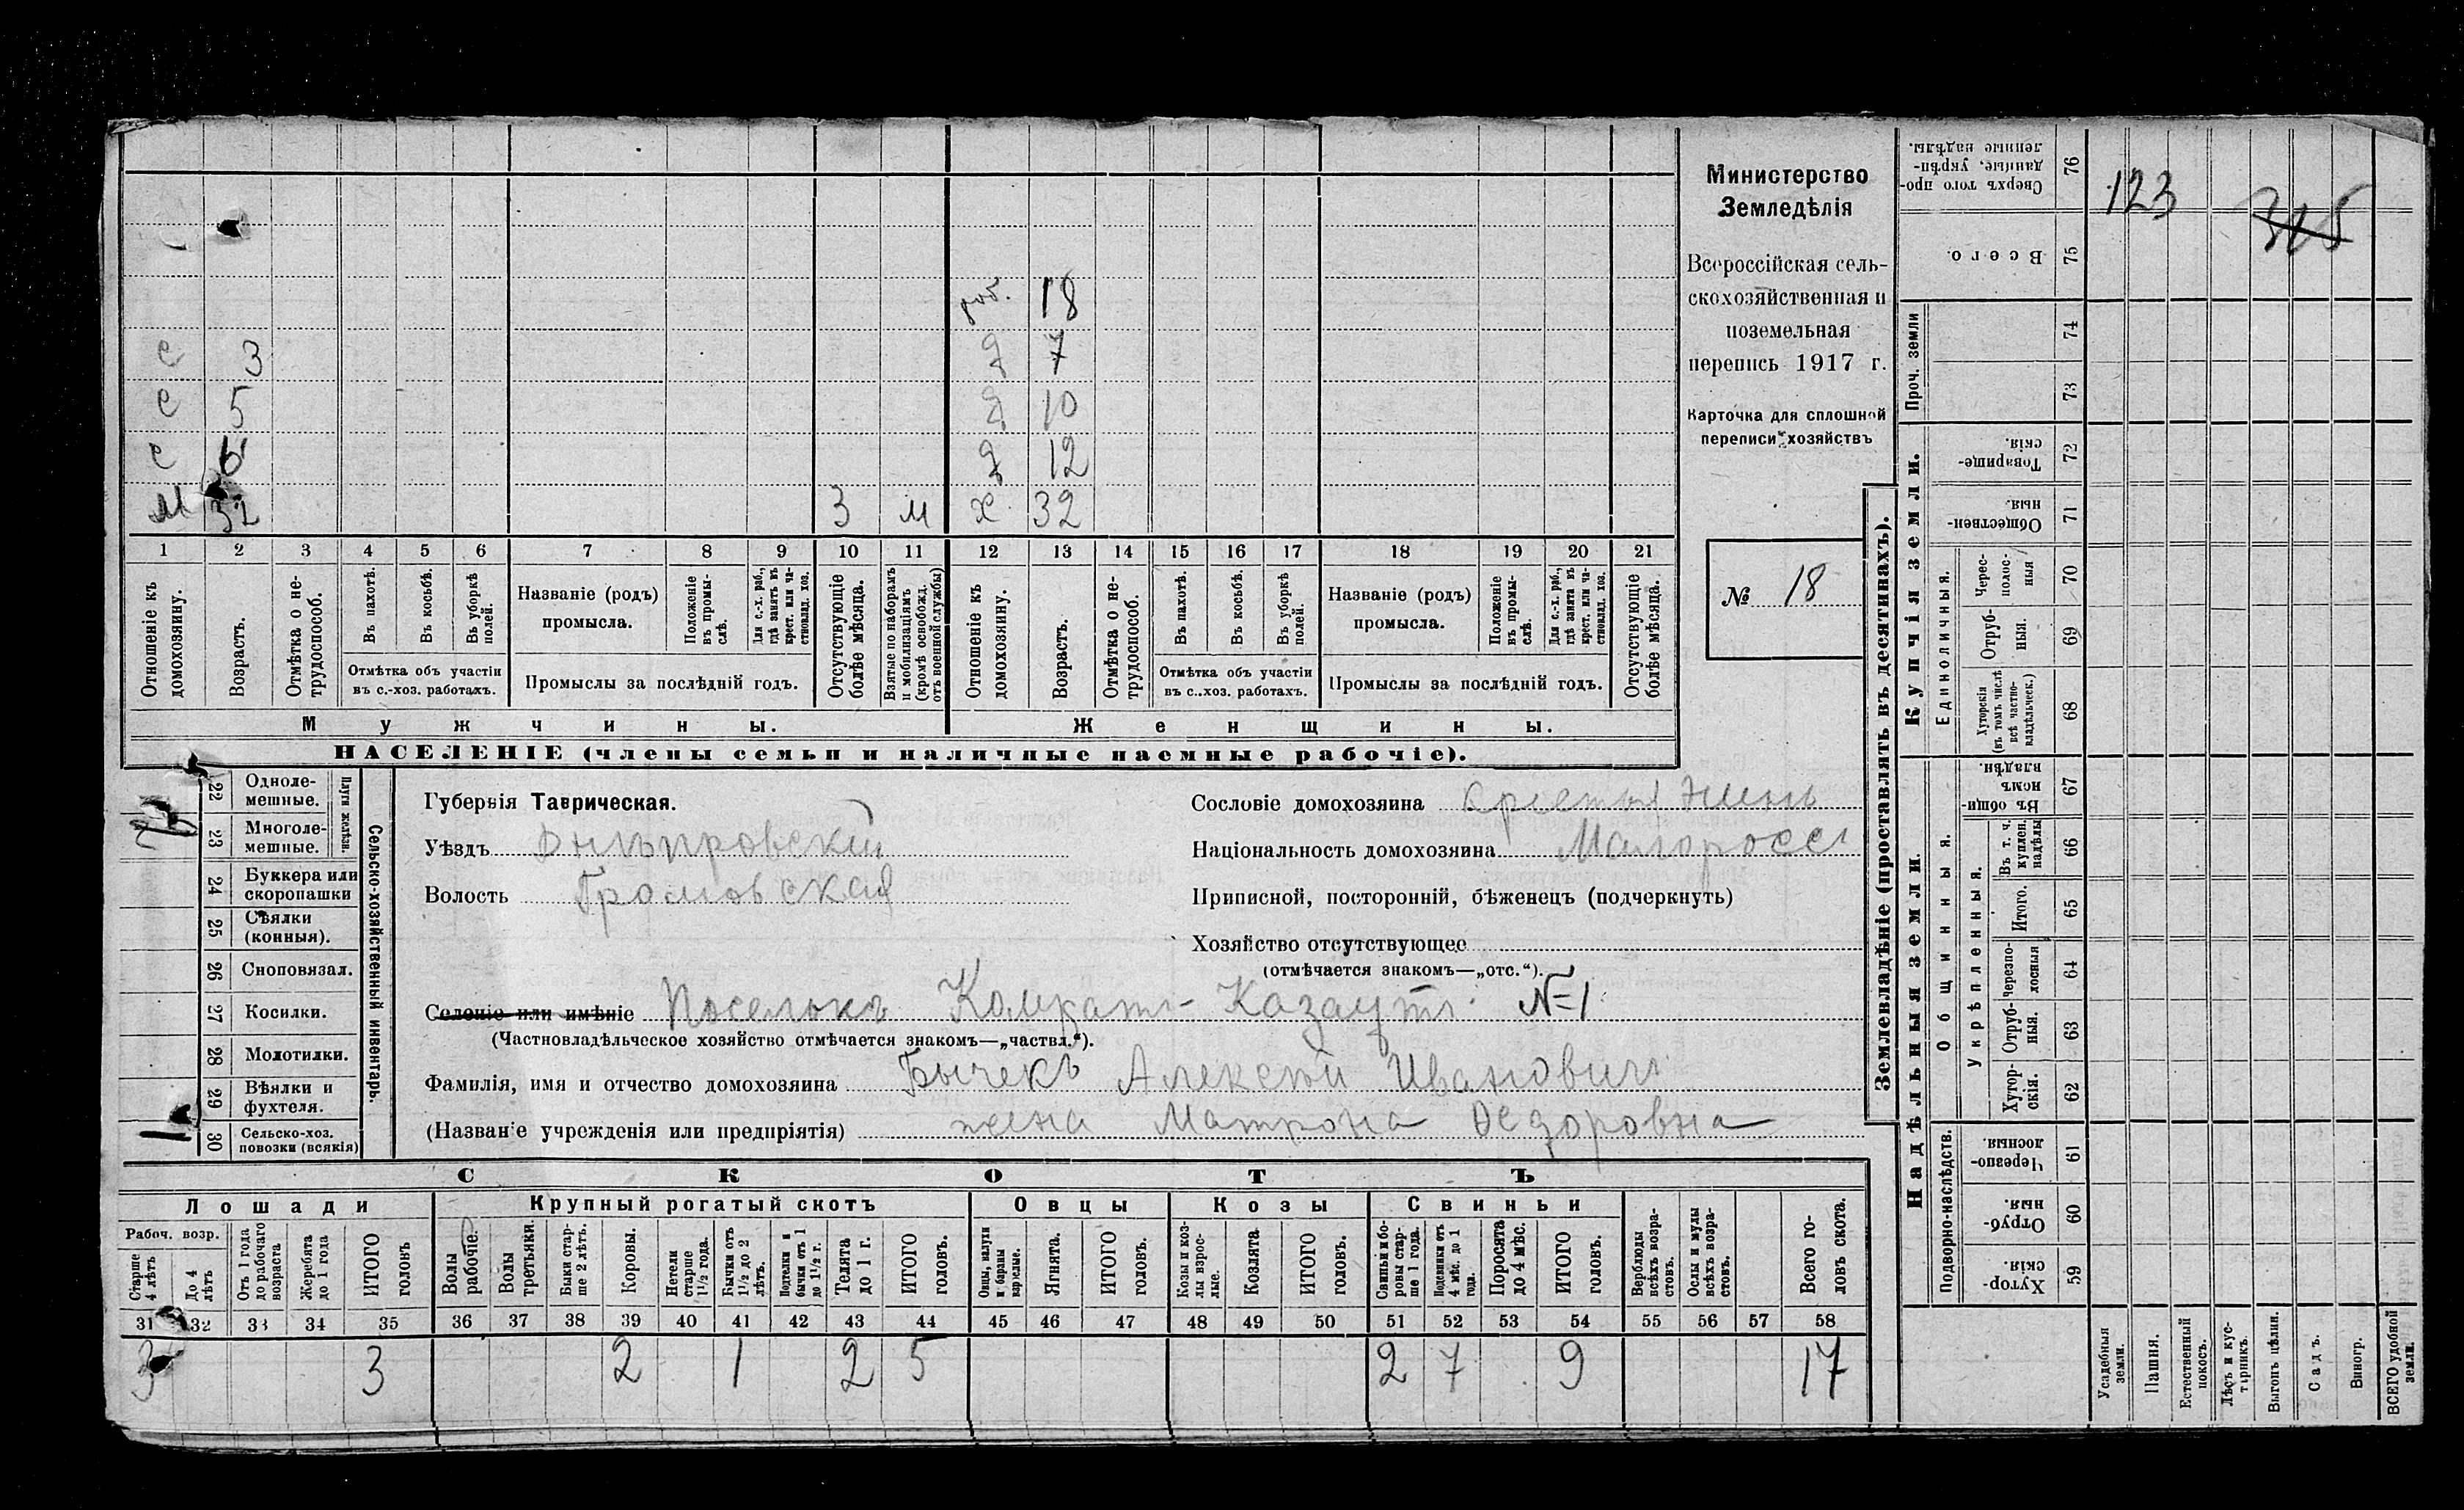 Министерство
Земледѣлія
Всероссійская сель-
скохозяйственная и
поземельная
перепись 1917 г.
Карточка для сплошной
переписи хозяйствъ
№ 18
роб. 18
с 3 д 7
с 5 д 10
с 6 д 12
м 32 3 м х 32
1 2 3 4 5 6 7 8 9 10 11 12 13 14 15 16 17 18 19 20 21
Отношеніе къ домохозяину.
Возрастъ.
Отмѣтка о не-трудоспособ.
Въ пахотѣ.
Въ косьбѣ.
Въ уборкѣ полей.
Отмѣтка объ участіи
въ с.-хоз. работахъ.
Названіе (родъ)
промысла.
Положеніе въ промы-слѣ.
Для с.-х. раб., гдѣ занятъ въ крест. или ча-стновлад. хоз.
Промыслы за послѣдній годъ.
Отсутствующіе болѣе мѣсяца.
Взятые по наборамъ и мобилизаціямъ (кромѣ освобожд. отъ военной службы)
Отношеніе къ домохозяину.
Возрастъ.
Отмѣтка о не-трудоспособ.
Въ пахотѣ.
Въ косьбѣ.
Въ уборкѣ полей.
Отмѣтка объ участіи
въ с.-хоз. работахъ.
Названіе (родъ)
промысла.
Положеніе въ промы-слѣ.
Для с.-х. раб., гдѣ занята въ крест. или ча-стновлад. хоз.
Промыслы за послѣдній годъ.
Отсутствующіе болѣе мѣсяца.
Мужчины. Женщины.
НАСЕЛЕНІЕ (члены семьи и наличные наемные рабочіе).
22 Одноле-мешные.
23 Многоле-мешные.
Плуги желѣзн.
24 Буккера или скоропашки
25 Сѣялки (конныя).
26 Сноповязал.
27 Косилки.
28 Молотилки.
29 Вѣялки и фухтеля.
30 Сельско-хоз. повозки (всякія)
Сельско-хозяйственный инвентарь.
Губернія Таврическая.
Уѣздъ Днѣпровскій
Волость Громовская
Сословіе домохозяина крестьянинъ
Національность домохозяина Малороссъ
Приписной, посторонній, бѣженецъ (подчеркнуть)
Хозяйство отсутствующее
(отмѣчается знакомъ—„отс.“).
Селеніе или имѣніе Поселокъ Комратъ-Казаутъ №1
(Частновладѣльческое хозяйство отмѣчается знакомъ—„частвл.“).
Фамилія, имя и отчество домохозяина Бычекъ Алексѣй Ивановичъ
(Названіе учрежденія или предпріятія) жена Матрона Ѳедоровна
СКОТЪ
Лошади Крупный рогатый скотъ Овцы Козы Свиньи
Рабоч. возр.
Старше 4 лѣтъ
До 4 лѣтъ
Отъ 1 года до рабочаго возраста
Жеребята до 1 года
ИТОГО головъ
Волы рабочіе.
Волы третьяки.
Быки стар-ше 2 лѣтъ.
Коровы.
Нетели старше 1½ года.
Бычки отъ 1½ до 2 лѣтъ.
Подтелки и бычки отъ 1 до 1½ г.
Телята до 1 г.
ИТОГО головъ.
Овцы, валухи и бараны взрослые.
Ягнята.
ИТОГО головъ.
Козы и коз-лы взрос-лые.
Козлята
ИТОГО головъ.
Свиньи и бо-ровы стар-ше 1 года.
Подсвинки отъ 4 мѣс. до 1 года.
Поросята до 4 мѣс.
ИТОГО головъ.
Верблюды всѣхъ возра-стовъ.
Ослы и мулы всѣхъ возра-стовъ.
Всего го-ловъ скота.
31 32 33 34 35 36 37 38 39 40 41 42 43 44 45 46 47 48 49 50 51 52 53 54 55 56 57 58
3 3 2 1 2 5 2 7 9 17
Землевладѣніе (проставлять въ десятинахъ).
Купчія земли.
Надѣльныя земли.
Сверхъ того про-данные, укрѣп-ленные надѣлы. 76
123
315
Всего. 75
Проч. земли 74
73
Товарище-скія. 72
Обществен-ныя. 71
Единоличныя.
Черес-полос-ныя 70
Отруб-ныя. 69
Хуторскія (въ томъ числѣ всѣ частно-владѣльческ.) 68
Общинныя.
Въ общин-номъ владѣн. 67
Укрѣпленныя.
Въ т. ч. куплен. надѣлы 66
Итого. 65
Черезпо-лосныя 64
Отруб-ныя. 63
Хутор-скія. 62
Подворно-наслѣдств.
Черезпо-лосныя 61
Отруб-ныя 60
Хутор-скія. 59
Усадебныя земли.
Пашня.
Естественный покосъ.
Лѣсъ и кус-тарникъ.
Выгонъ цѣлин.
Садъ.
Виногр.
ВСЕГО удобной земли.